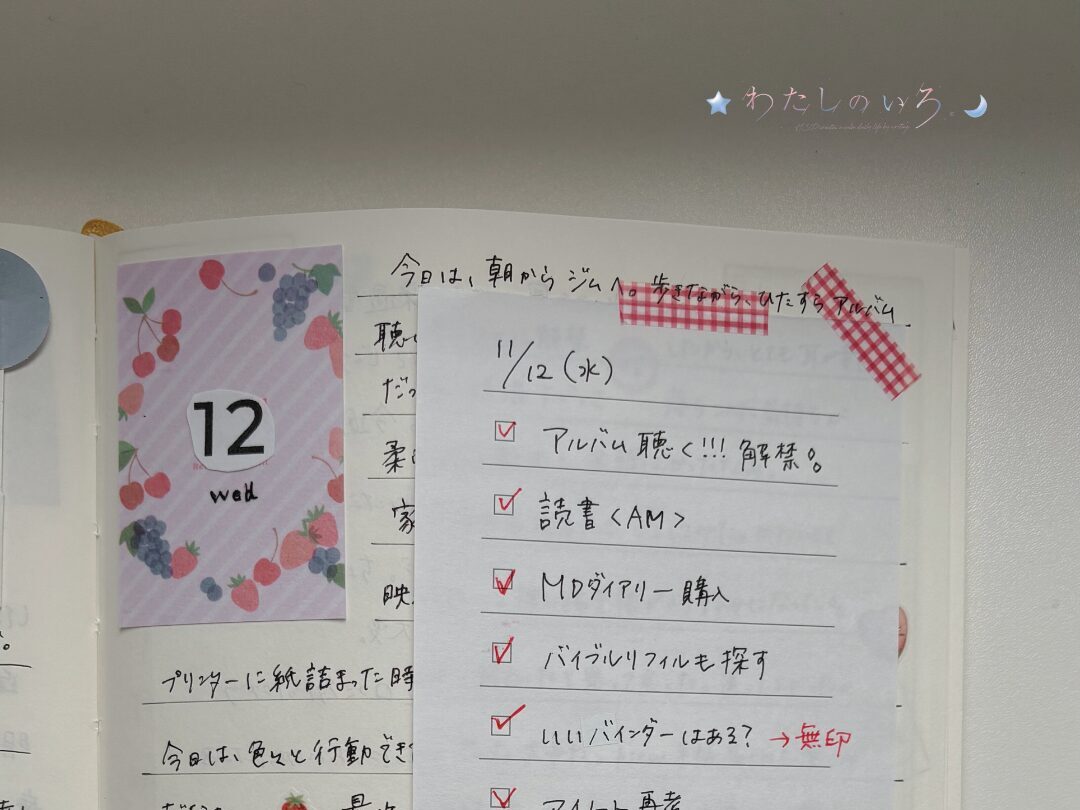 わたしのいろ。
12
wed
今日は、朝から ジムへ。歩きながら、ひたすら アルバム
聴
だっ
柔
家
映
プリンターに紙詰まった時
今日は、色々と行動でき
11/12(水)
アルバム 聴く!!! 解禁。
読書<AM>
MDダイアリー購入
バイブルリフィルも探す
いいバインダーはある? →無印
再考